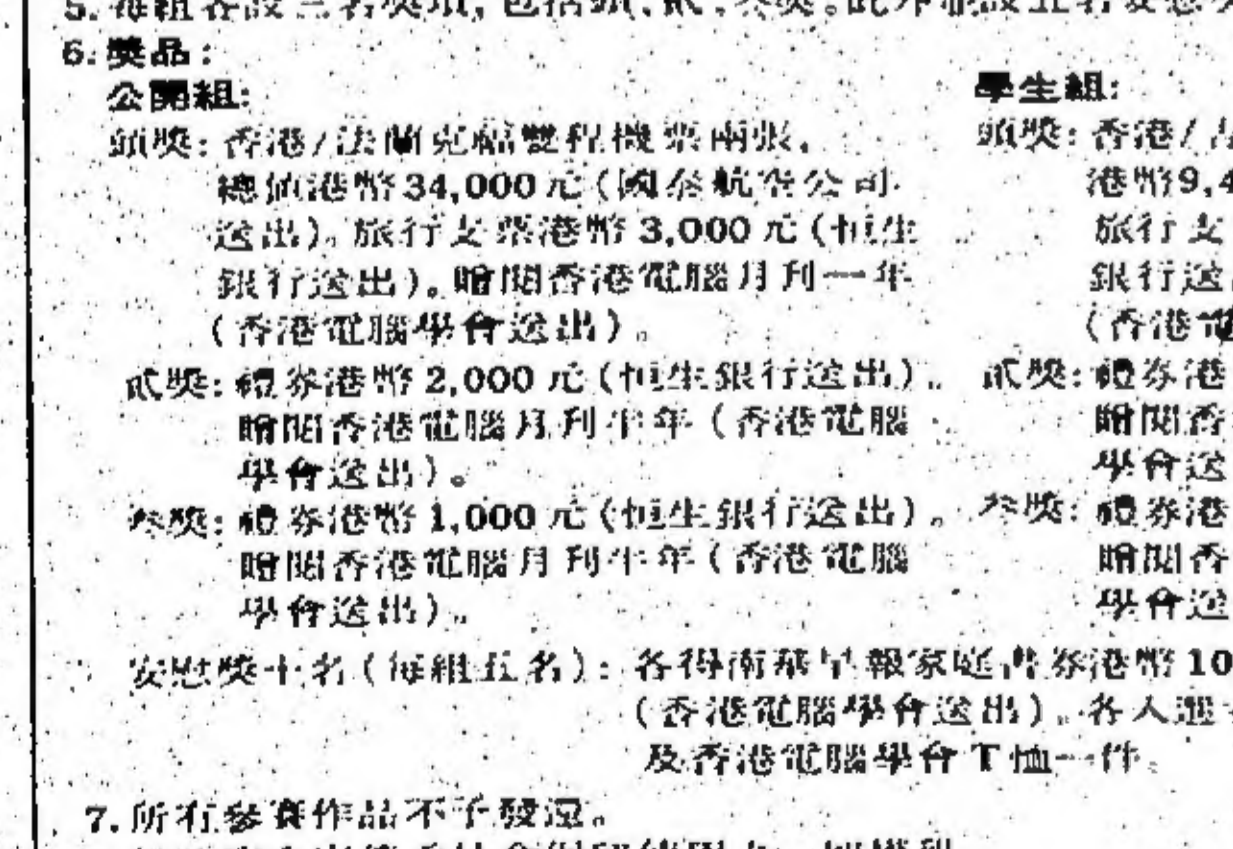 5. 每組各設三名獎項, 包括頭、貳、叁獎。此外
6. 獎品:
公開組:
頭獎: 香港/法蘭克福雙程機票兩張,
總值港幣34,000元(國泰航空公司
送出)。旅行支票港幣3,000元(恒生
銀行送出)。贈閱香港電腦月刊一年
(香港電腦學會送出)。
貳獎: 禮券港幣2,000元(恒生銀行送出)。
贈閱香港電腦月刊半年(香港電腦
學會送出)。
叁獎: 禮券港幣1,000元(恒生銀行送出)。
贈閱香港電腦月刊半年(香港電腦
學會送出)。
學生組:
頭獎: 香港/
港幣9,4
旅行支
銀行送
(香港電
貳獎: 禮券港
贈閱香
學會送
叁獎: 禮券港
贈閱香
學會送
安慰獎十名(每組五名): 各得南華早報家庭書券港幣10
(香港電腦學會送出)。各人
及香港電腦學會T恤一件。
7. 所有參賽作品不予發還。